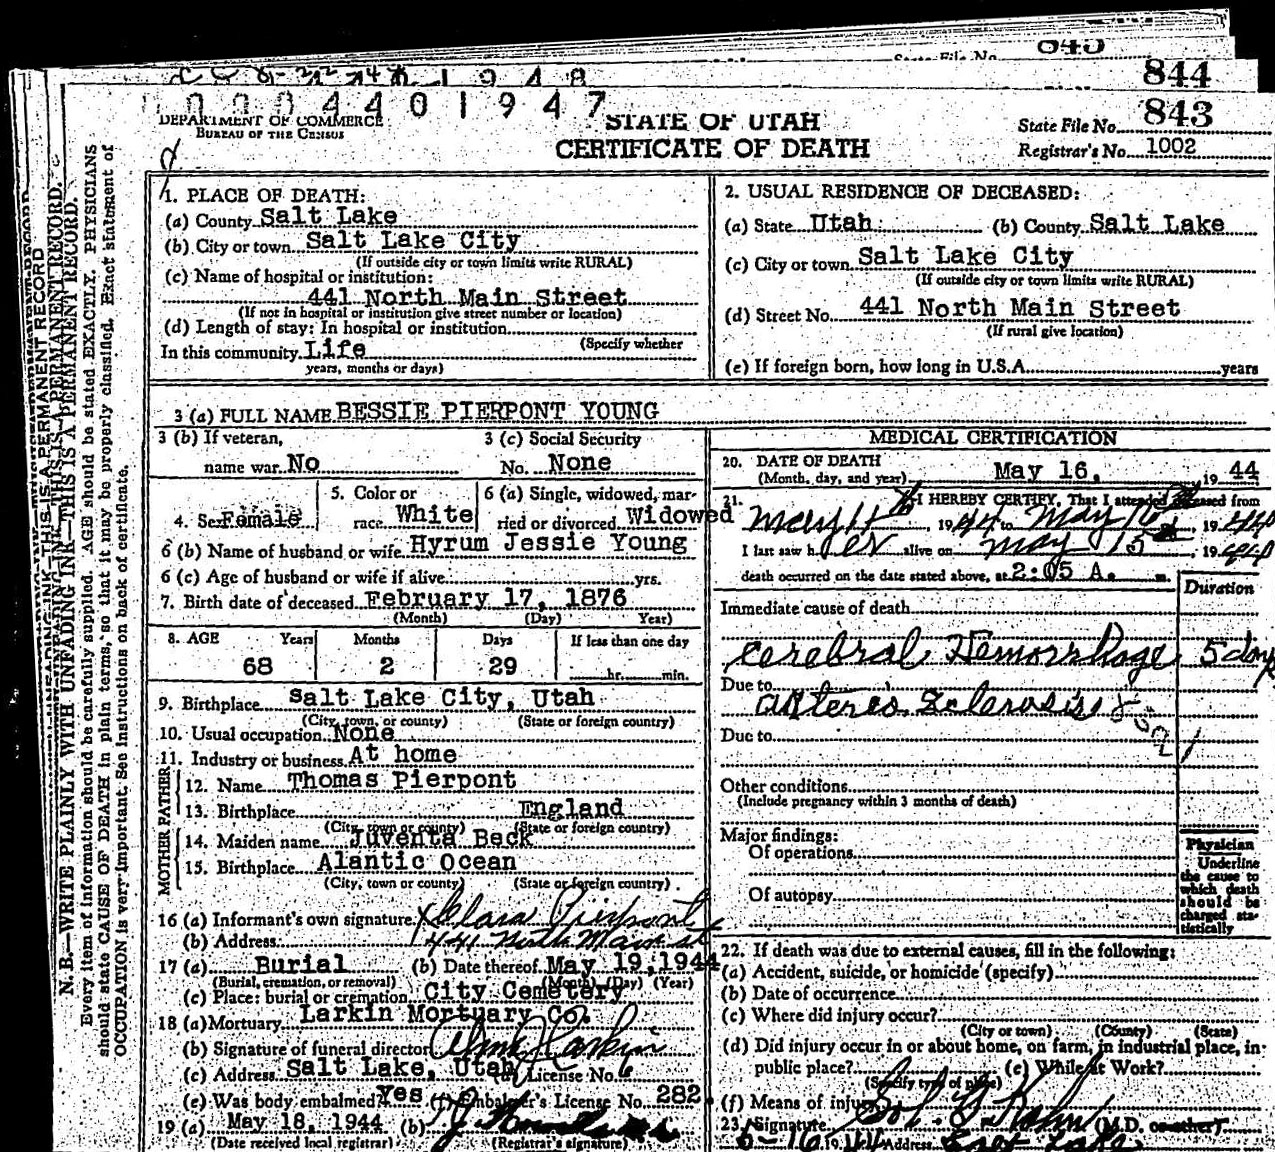 843
844
1948
00044 01947
DEPARTMENT OF COMMERCE
BUREAU OF THE CENSUS
STATE OF UTAH
CERTIFICATE OF DEATH
State File No. 843
Registrar's No. 1002
N. B.—WRITE PLAINLY WITH UNFADING INK—THIS IS A PERMANENT RECORD.
Every item of information should be carefully supplied. AGE should be stated EXACTLY. PHYSICIANS
should state CAUSE OF DEATH in plain terms, so that it may be properly classified. Exact statement of
OCCUPATION is very important. See instructions on back of certificate.
1. PLACE OF DEATH:
(a) County Salt Lake
(b) City or town Salt Lake City
(If outside city or town limits write RURAL)
(c) Name of hospital or institution:
441 North Main Street
(If not in hospital or institution give street number or location)
(d) Length of stay: In hospital or institution
(Specify whether
In this community Life
years, months or days)
2. USUAL RESIDENCE OF DECEASED:
(a) State Utah (b) County Salt Lake
(c) City or town Salt Lake City
(If outside city or town limits write RURAL)
(d) Street No. 441 North Main Street
(If rural give location)
(e) If foreign born, how long in U.S.A. years
3 (a) FULL NAME BESSIE PIERPONT YOUNG
3 (b) If veteran, 3 (c) Social Security
name war No No. None
5. Color or 6 (a) Single, widowed, mar-
4. Sex Female race White ried or divorced Widowed
6 (b) Name of husband or wife Hyrum Jessie Young
6 (c) Age of husband or wife if alive yrs.
7. Birth date of deceased February 17, 1876
(Month) (Day) Year)
8. AGE Years Months Days If less than one day
68 2 29 hr. min.
9. Birthplace Salt Lake City, Utah
(City, town, or county) (State or foreign country)
10. Usual occupation None
11. Industry or business At home
FATHER
12. Name Thomas Pierpont
13. Birthplace England
(City, town or county) (State or foreign country)
MOTHER
14. Maiden name Juventa Beck
15. Birthplace Alantic Ocean
(City, town or county) (State or foreign country)
16 (a) Informant's own signature Clara Pierpont
(b) Address 441 North Main st
17 (a) Burial (b) Date thereof May 19, 1944
(Burial, cremation, or removal) (Month) (Day) (Year)
(c) Place: burial or cremation City Cemetery
18 (a) Mortuary Larkin Mortuary Co.
(b) Signature of funeral director Larkin
(c) Address Salt Lake, Utah (d) License No. 6
(e) Was body embalmed? Yes (f) Embalmer's License No. 282.
19 (a) May 18, 1944 (b)
(Date received local registrar) (Registrar's signature)
MEDICAL CERTIFICATION
20. DATE OF DEATH
(Month, day, and year) May 16, 1944
21. I HEREBY CERTIFY, That I attended deceased from
May 11th, 1944 to May 16, 1944
I last saw her alive on May 15, 1944
death occurred on the date stated above, at 2:05 A. m.
Duration
Immediate cause of death
Cerebral Hemorrhage 5 days
Due to
Arterio Sclerosis
Due to
Other conditions
(Include pregnancy within 3 months of death)
Major findings:
Of operations
Of autopsy
Physician
Underline
the cause to
which death
should be
charged sta-
tistically
22. If death was due to external causes, fill in the following:
(a) Accident, suicide, or homicide (specify)
(b) Date of occurrence
(c) Where did injury occur?
(City or town) (County) (State)
(d) Did injury occur in or about home, on farm, in industrial place, in-
public place? (e) While at Work?
(Specify type of place)
(f) Means of injury
23. Signature Sol. G. Kahn (M.D. or other)
5-16 1944 Address Salt Lake